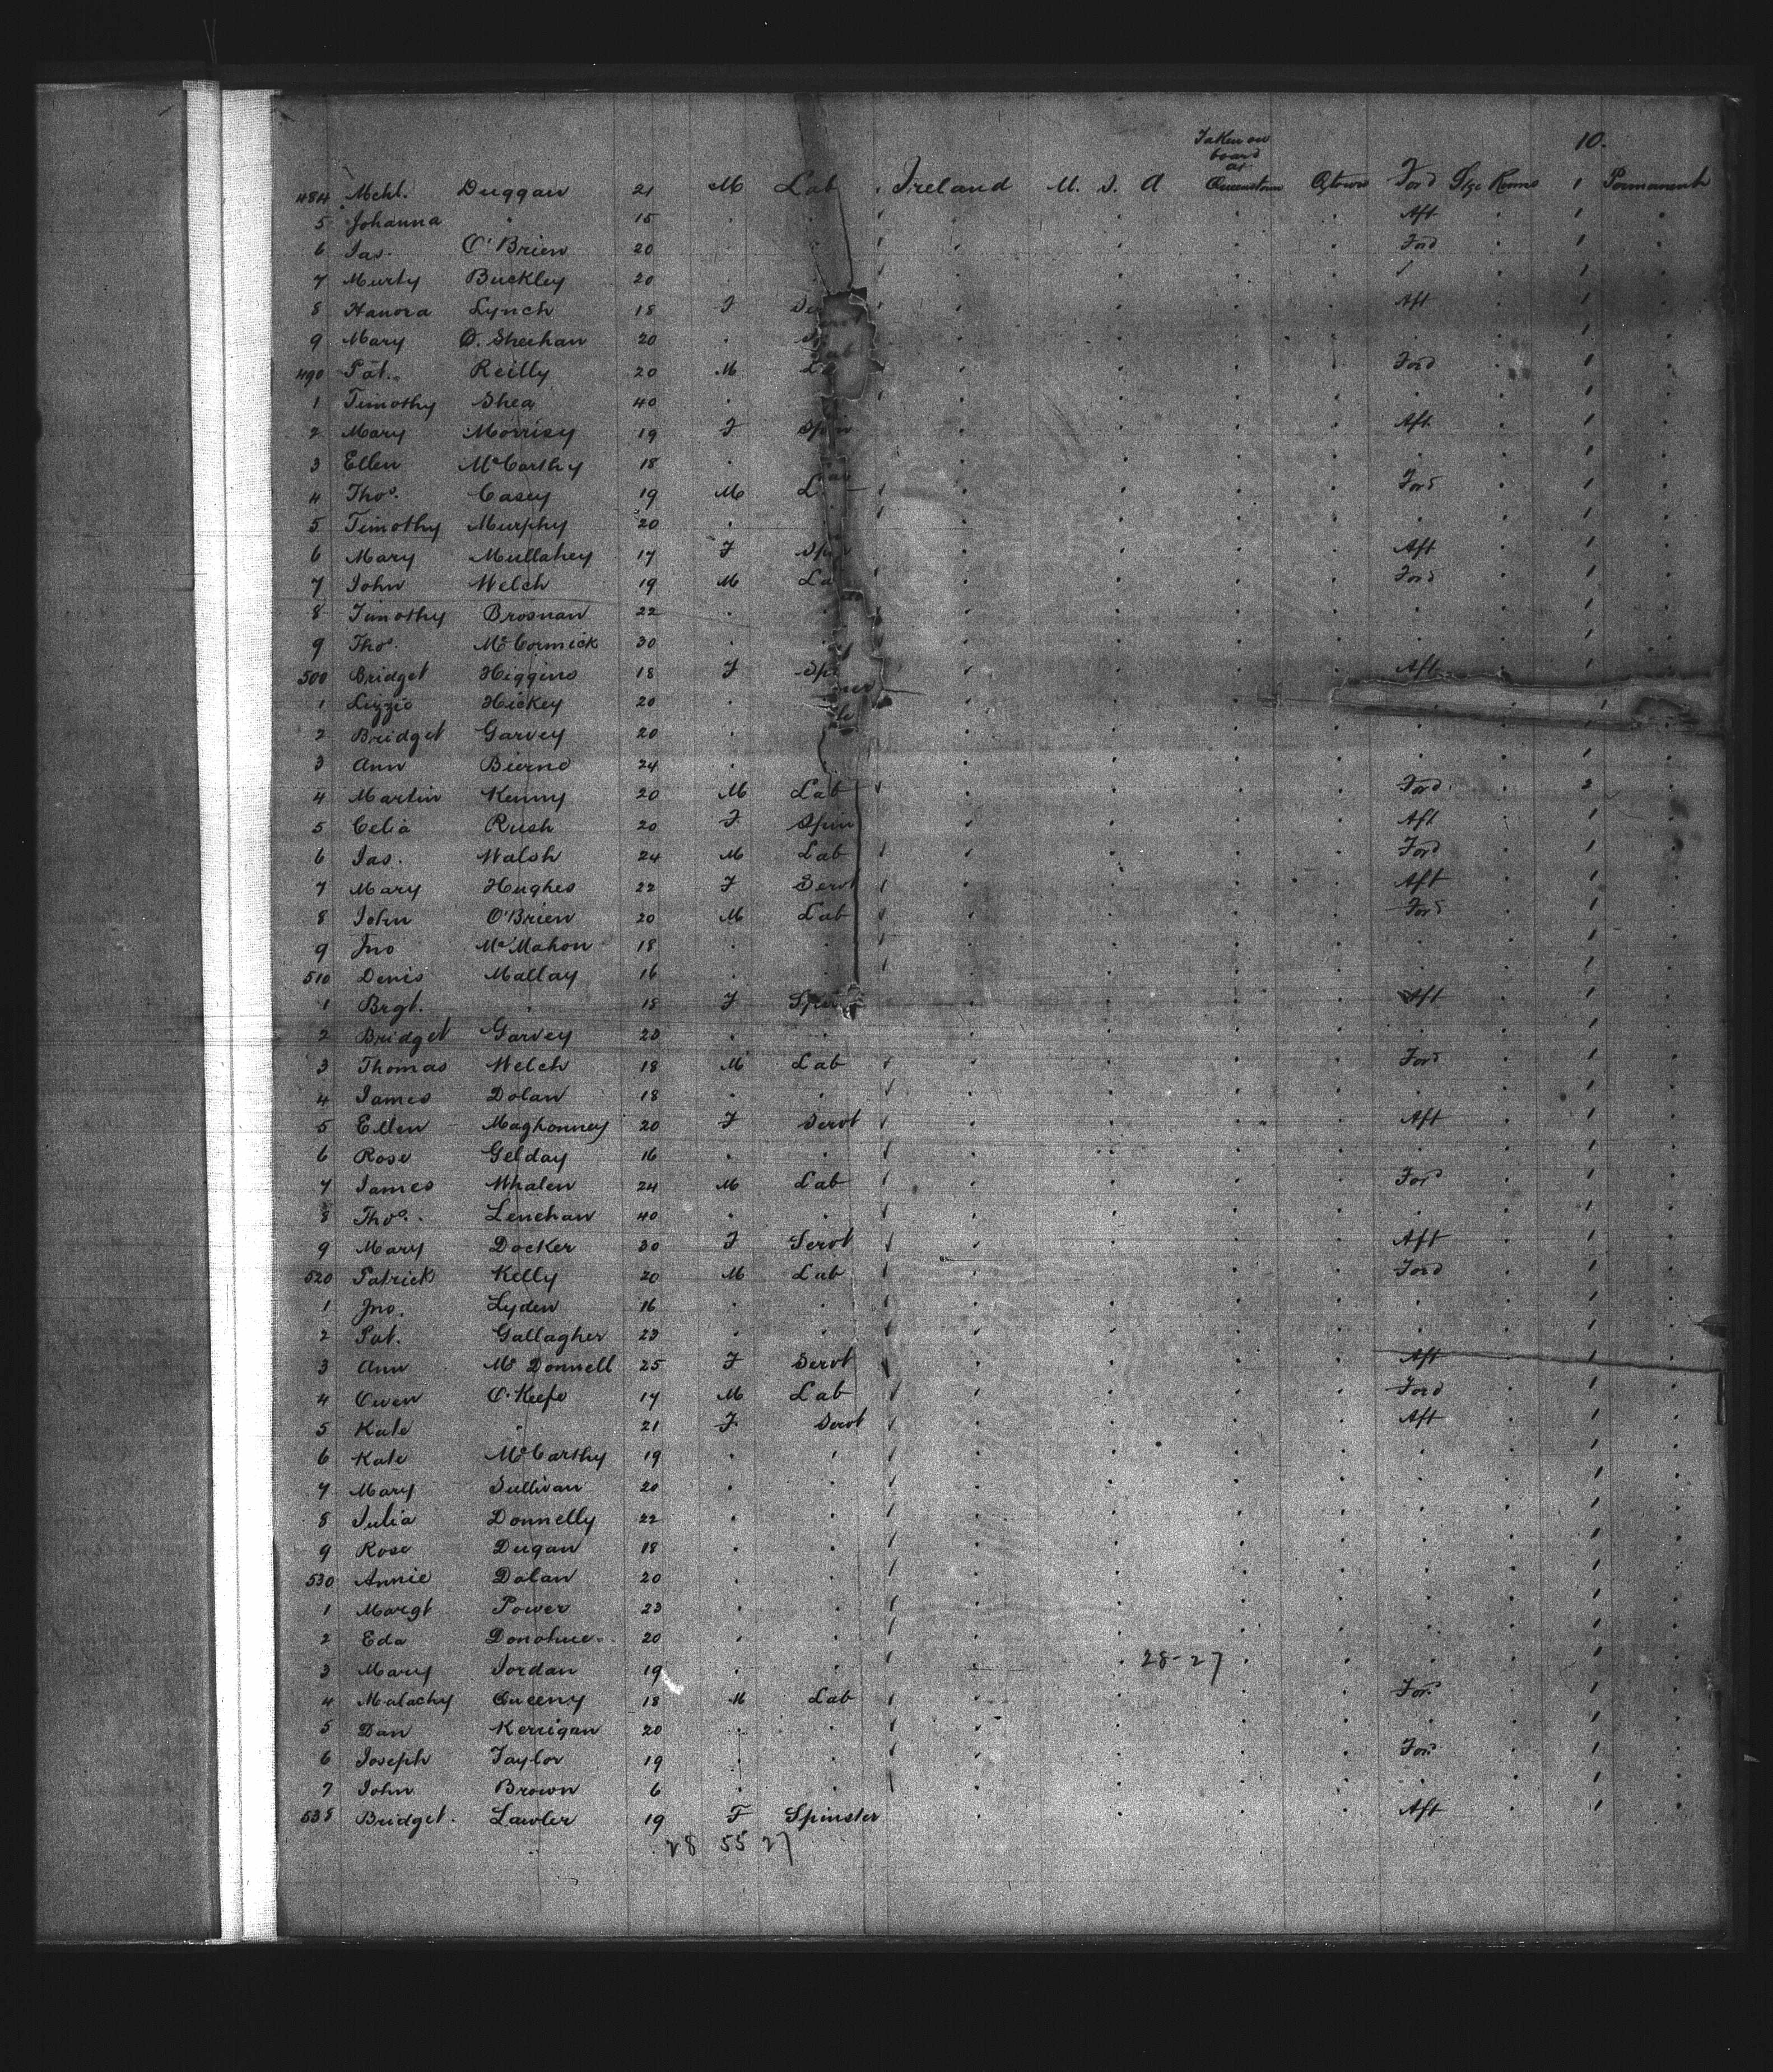 10.
Taken on
board
at
484 Mchl. Duggan 21 M Lab Ireland U. S. A Queenstown Qtown Ford Stge Rooms 1 Permanent
5 Johanna " 15 Aft 1
6 Jas. O'Brien 20 Ford 1
7 Murty Buckley 20 1
8 Hanora Lynch 18 F Aft 1
9 Mary O. Sheehan 20 1
490 Pat. Reilly 20 M Ford 1
1 Timothy Shea 40 1
2 Mary Morrisy 19 F Spin Aft 1
3 Ellen McCarthy 18 1
4 Thos. Casey 19 M Ford 1
5 Timothy Murphy 20 1
6 Mary Mullahey 17 F Spin Aft 1
7 John Welch 19 M La Ford 1
8 Timothy Brosnan 22 1
9 Thos. McCormick 30 1
500 Bridget Higgins 18 F Spi Aft 1
1 Lizzie Hickey 20 1
2 Bridget Garvey 20
3 Ann Bierne 24 1
4 Martin Kenny 20 M Lab Ford 2
5 Celia Rush 20 F Spin Aft 1
6 Jas. Walsh 24 M Lab Ford 1
7 Mary Hughes 22 F Servt Aft 1
8 John O'Brien 20 M Lab Ford 1
9 Jno McMahon 18 1
510 Denis Mallay 16 1
1 Brgt. " 18 F Spin Aft 1
2 Bridget Garvey 20 1
3 Thomas Welch 18 M Lab Ford 1
4 James Dolan 18 1
5 Ellen Maghonney 20 F Servt Aft 1
6 Rose Gelday 16 1
7 James Whalen 24 M Lab Ford 1
8 Thos. Lenehan 40 1
9 Mary Docker 30 F Servt Aft 1
520 Patrick Kelly 20 M Lab Ford 1
1 Jno. Lyden 16 1
2 Pat. Gallagher 23 1
3 Ann McDonnell 25 F Servt Aft 1
4 Owen O'Keefe 17 M Lab Ford 1
5 Kate " 21 F Servt Aft 1
6 Kate McCarthy 19 1
7 Mary Sullivan 20 1
8 Julia Donnelly 22 1
9 Rose Dugan 18 1
530 Annie Dolan 20 1
1 Margt Power 23 1
2 Eda Donohue 20 1
3 Mary Jordan 19 28-27 1
4 Malachy Queeny 18 M Lab For 1
5 Dan Kerrigan 20 1
6 Joseph Taylor 19 For 1
7 John Brown 6 1
538 Bridget Lawler 19 F Spinster Aft 1
28 55 27